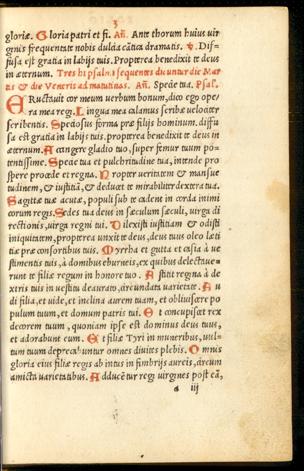 3
gloriæ. Gloria patri et fi. Añ. Ante thorum huius vir
ginis frequentate nobis dulcia cãtica dramatis. ℣. Dif-
fusa est gratia in labijs tuis. Propterea benedixit te deus
in æternum. Tres hi psalmi sequentes dicuntur die Mar
tis & die Veneris ad matutinas. Añ. Specie tua. Psal.
ERuctauit cor meum verbum bonum, dico ego ope-
ra mea regi. Lingua mea calamus scribæ velociter
scribentis. Speciosus forma præ filijs hominum. diffu
sa est gratia in labijs tuis. propterea benedixit te deus in
æternum. Accingere gladio tuo, super femur tuum po-
tentissime. Specie tua et pulchritudine tua, intende pro
spere procede et regna. Propter veritatem & mansue
tudinem, & iustitiã, & deducet te mirabiliter dextera tua.
Sagittæ tuæ acutæ, populi sub te cadent in corda inimi
corum regis. Sedes tua deus in sæculum sæculi, virga di
rectionis, virga regni tui. Dilexisti iustitiam & odisti
iniquitatem, propterea vnxit te deus, deus tuus oleo læti
tiæ præ consortibus tuis. Myrrha et gutta et casia à ve
stimentis tuis, à domibus eburneis, ex quibus delectaue-
runt te filiæ regum in honore tuo. Astitit regina à de
xtris tuis in vestitu deaurato, circundata varietate. Au
di filia, et vide, et inclina aurem tuam, et obliuiscere po
pulum tuum, et domum patris tui. Et concupiscet rex
decorem tuum, quoniam ipse est dominus deus tuus,
et adorabunt eum. Et filiæ Tyri in muneribus, vul-
tum tuum deprecabuntur omnes diuites plebis. Omnis
gloria eius filiæ regis ab intus in fimbrijs aureis, circum
amicta varietatibus. Adducẽtur regi virgines post eã,
a iij